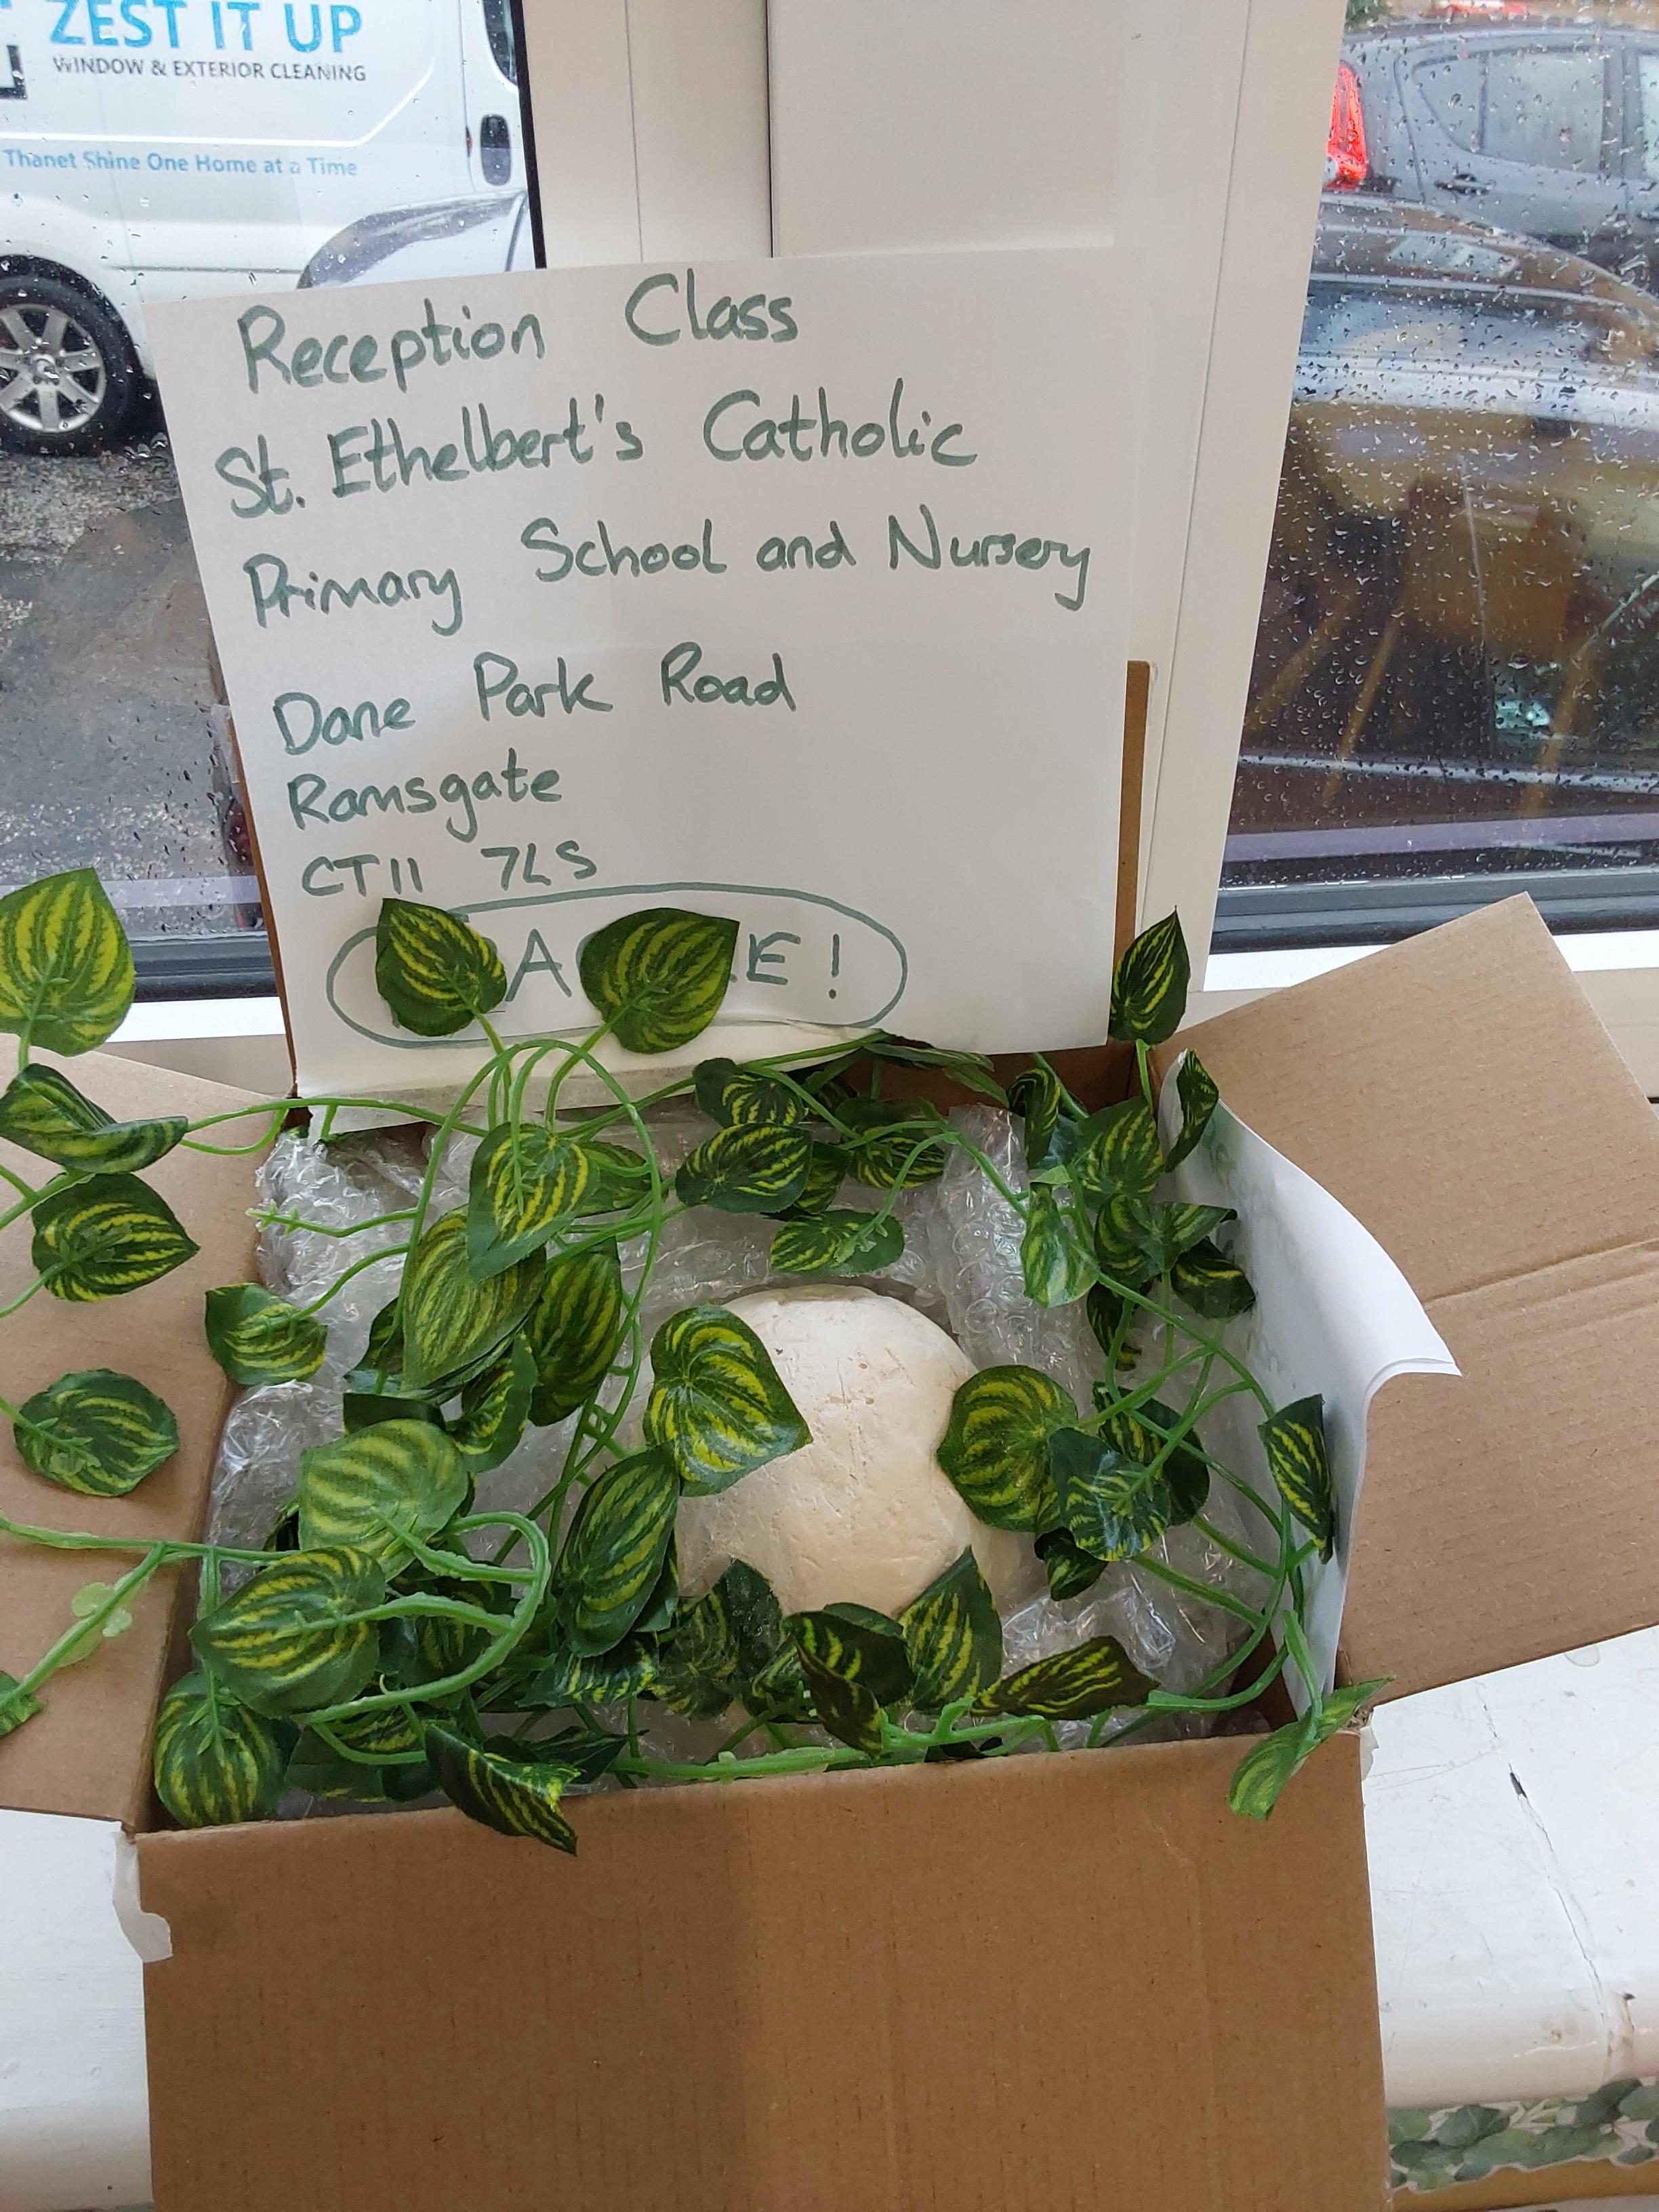 ZEST IT UP
WINDOW & EXTERIOR CLEANING
Thanet Shine One Home at a Time
Reception Class
St. Ethelbert's Catholic
Primary School and Nursery
Dane Park Road
Ramsgate
CT11 7LS